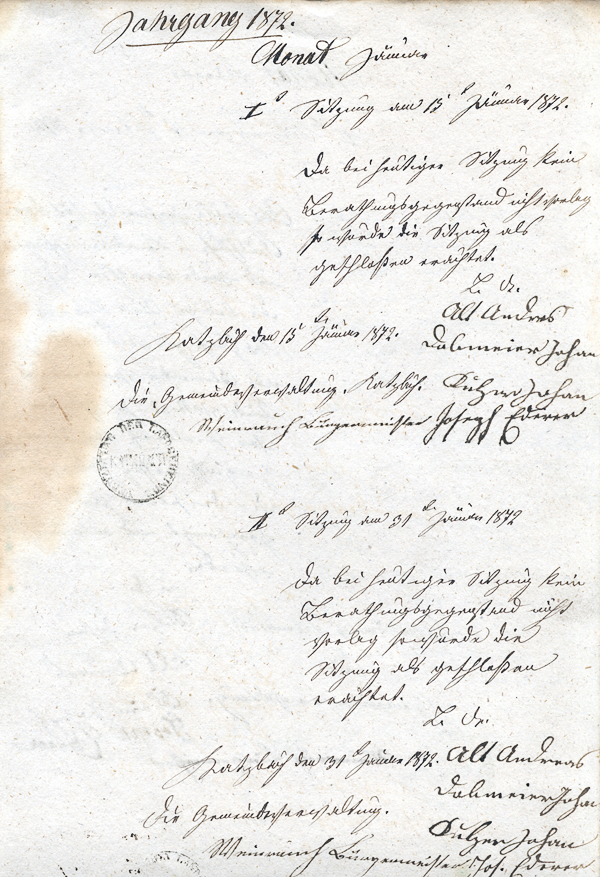 Jahrgang 1872.
Monat Jänner
I.e Sitzung am 15t Jänner 1872.
Da bei heutiger Sitzung kein
Berathungsgegenstand nicht vorlag
so wurde die Sitzung als
geschloßen erachtet.
Alt Andres
Katzbach den 15t Jänner 1872.
Dobmeier Johan
Die Gemeindeverwaltung Katzbach.
Johan
Weinrauch Bürgermeister Joseph Ederer
II.e Sitzung am 31t Jänner 1872
Da bei heutiger Sitzung kein
Berathungsgegenstand nicht
vorlag so wurde die
Sitzung als geschloßen
erachtet.
Katzbach den 31t Jänner 1872. Alt Andreas
Dobmeier Johan
Die Gemeindeverwaltung.
Johan
Weinrauch Bürgermeister Jos. Ederer